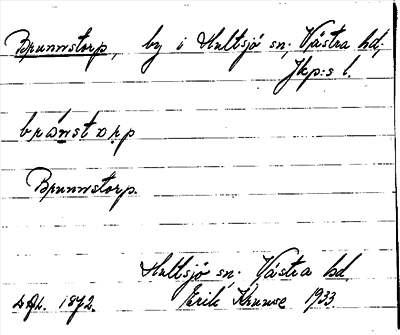 Brunnstorp, by i Hultsjö sn; Västra hd;
Jkp:s l.
Brunnstorp.
Hultsjö sn. Västra hd.
1892. Erik Kruuse 1933.